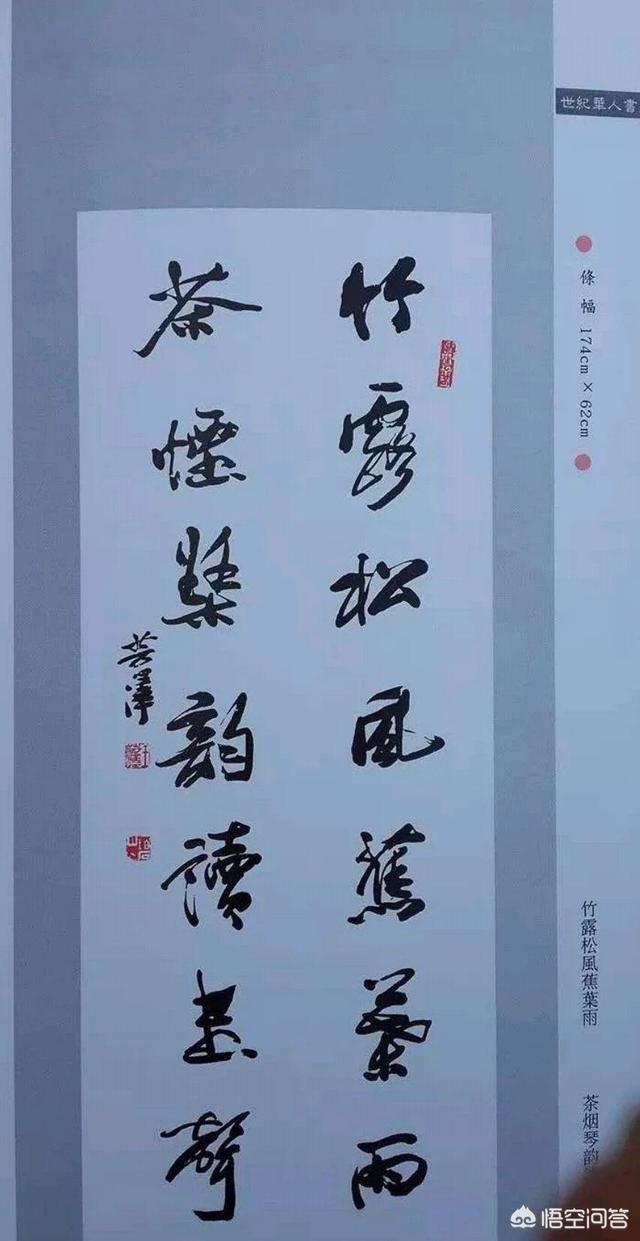 竹露松風蕉葉雨
茶煙琴韵讀書聲
世紀華人書
條幅 174cm×62cm
竹露松風蕉葉雨
茶烟琴韵
悟空问答